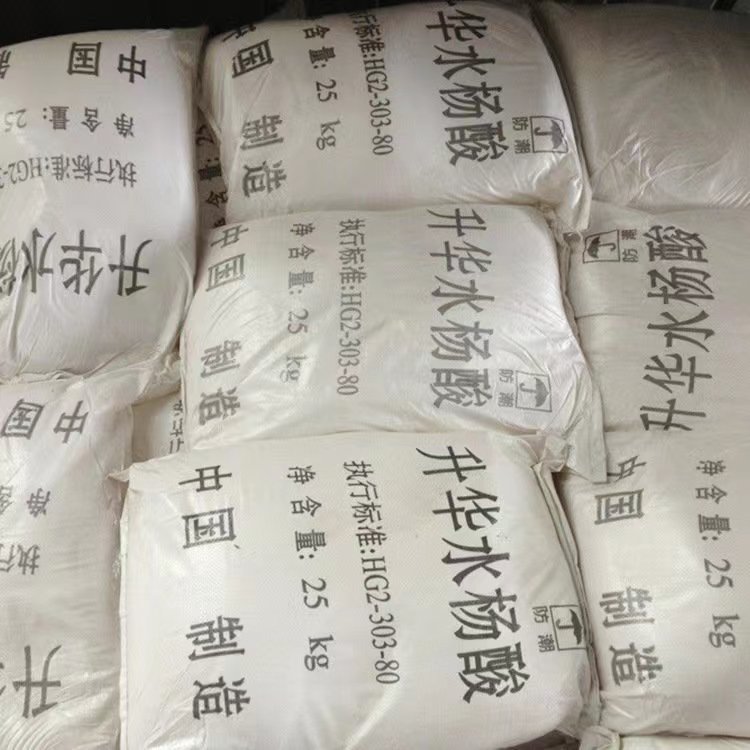 中国
净含量: 25
执行标准:HG2-3
升华水杨
国 制造
含量: 25 kg
执行标准:HG2-303-80
华水杨酸
防潮
中国 制造
净含量: 25 kg
执行标准:HG2-303-80
升华水杨酸
防潮
升华水杨酸
防潮
中国
净含
执行
升
中国 制造
净含量: 25 kg
执行标准:HG2-303-80
升华水杨酸
防潮
中国 制造
净含量: 25 kg